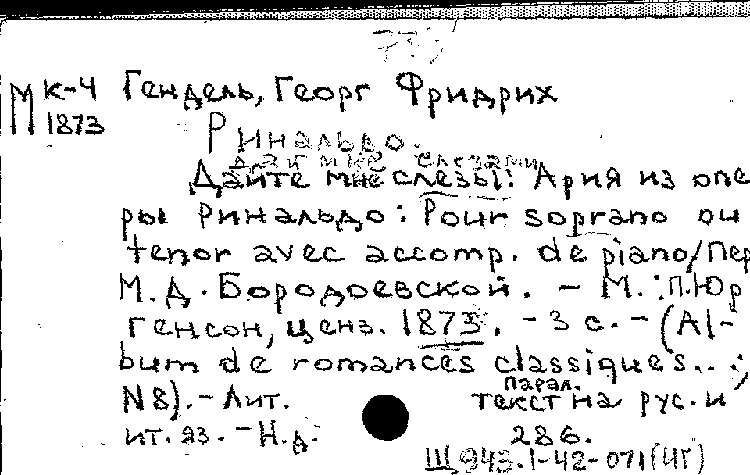 М к-4 Гендель, Георг Фридрих
1873
Ринальдо.
Дай мне слезами
Дайте мне слезы: Ария из опе
ры Ринальдо: Pour soprano ou
tenor avec accomp. de piano/Пер
М.Д. Бородоевской. - М.: П.Юр
генсон, ценз. 1873. - 3 с. - (Al-
bum de romances classiques...;
N8). - Лит.
парал.
текст на рус. и
ит. яз. - Н.д.
286.
Щ 943.1-42-071(4Г)